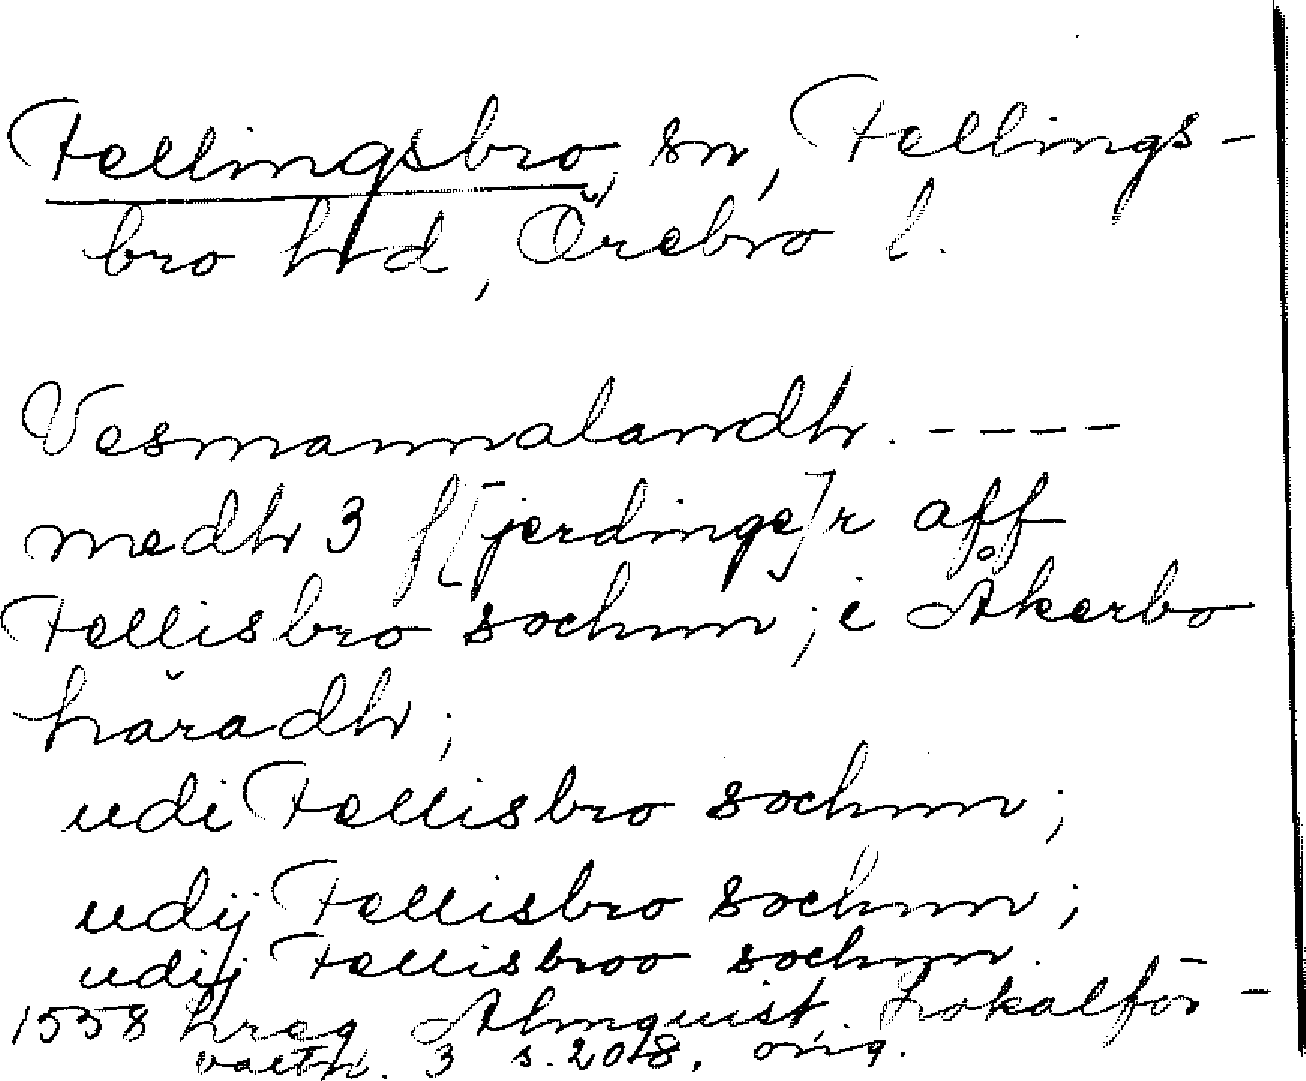 Fellingsbro, sn, Fellings-
bro hd, Örebro l.
Vesmannalandh. ----
medh 3 f[jerdinge]r aff
Fellisbro sochnn; i Åkerbo
häradh;
udi Fellisbro sochnn;
udij Fellisbro sochnn;
udij Fellisbroo sochnn.
1558 hreg Almquist, Lokalför-
valtn. 3 s. 208. orig.